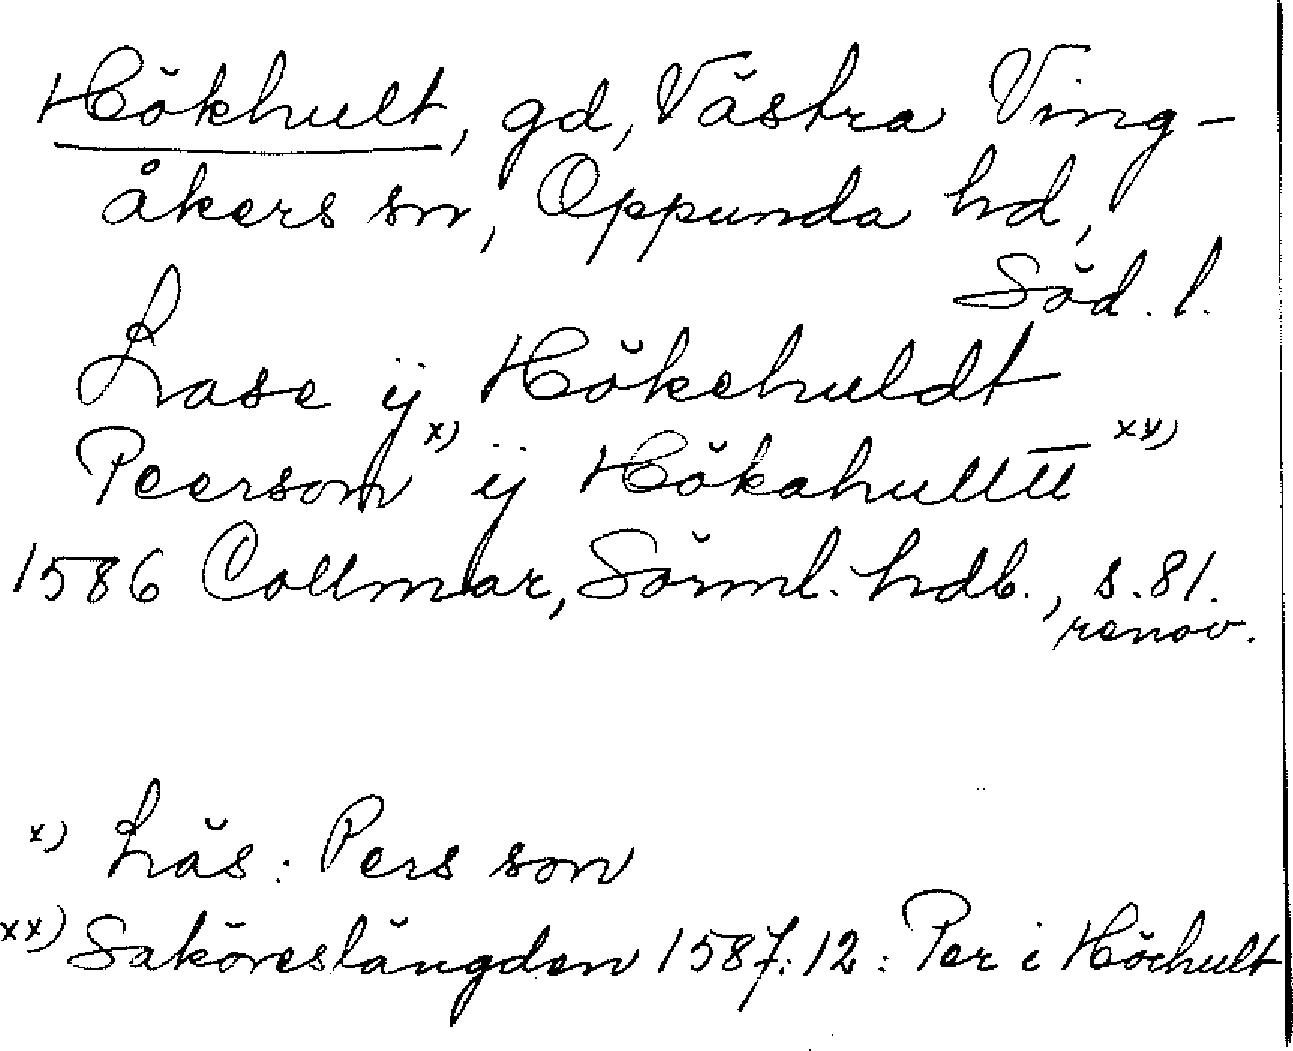 Hökhult, gd, Västra Ving-
åkers sn, Oppunda hd,
Söd. l.
Lase ij Hökehuldt
Peerson x) ij Hökahulltt xx)
1586 Collmar, Sörml. hdl., s. 81.
renov.
x) Läs: Pers son
xx) Saköreslängden 1587:12: Per i Höchult